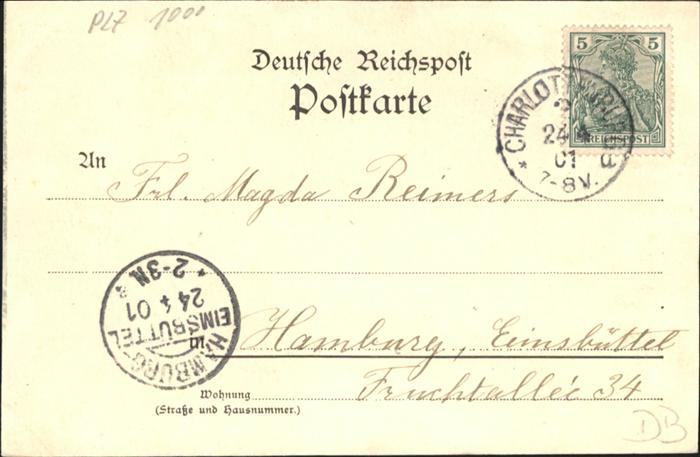 PLZ 1000
Deutsche Reichspost
Postkarte
5 5
REICHSPOST
24 4
01
7-8V.
An
Frl. Magda Reimers
HAMBURG-
EIMSBÜTTEL
24 4 01
* 2-3N *
in Hamburg, Eimsbüttel
Wohnung Fruchtallée 34
(Straße und Hausnummer.)
DB